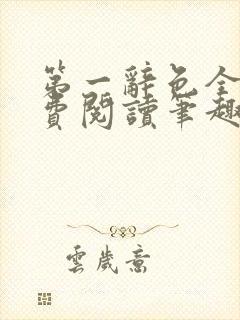 第一辭色全
費閱讀筆趣
雲歲意